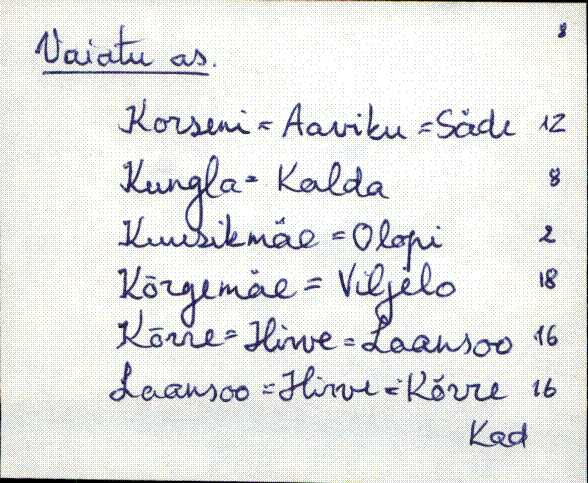 8
Vaiatu as.
Korseni = Aaviku = Säde 12
Kungla = Kalda 8
Kuusikmäe = Olopi 2
Kõrgemäe = Viljelo 18
Kõrre = Hirve = Laansoo 16
Laansoo = Hirve = Kõrre 16
Kad